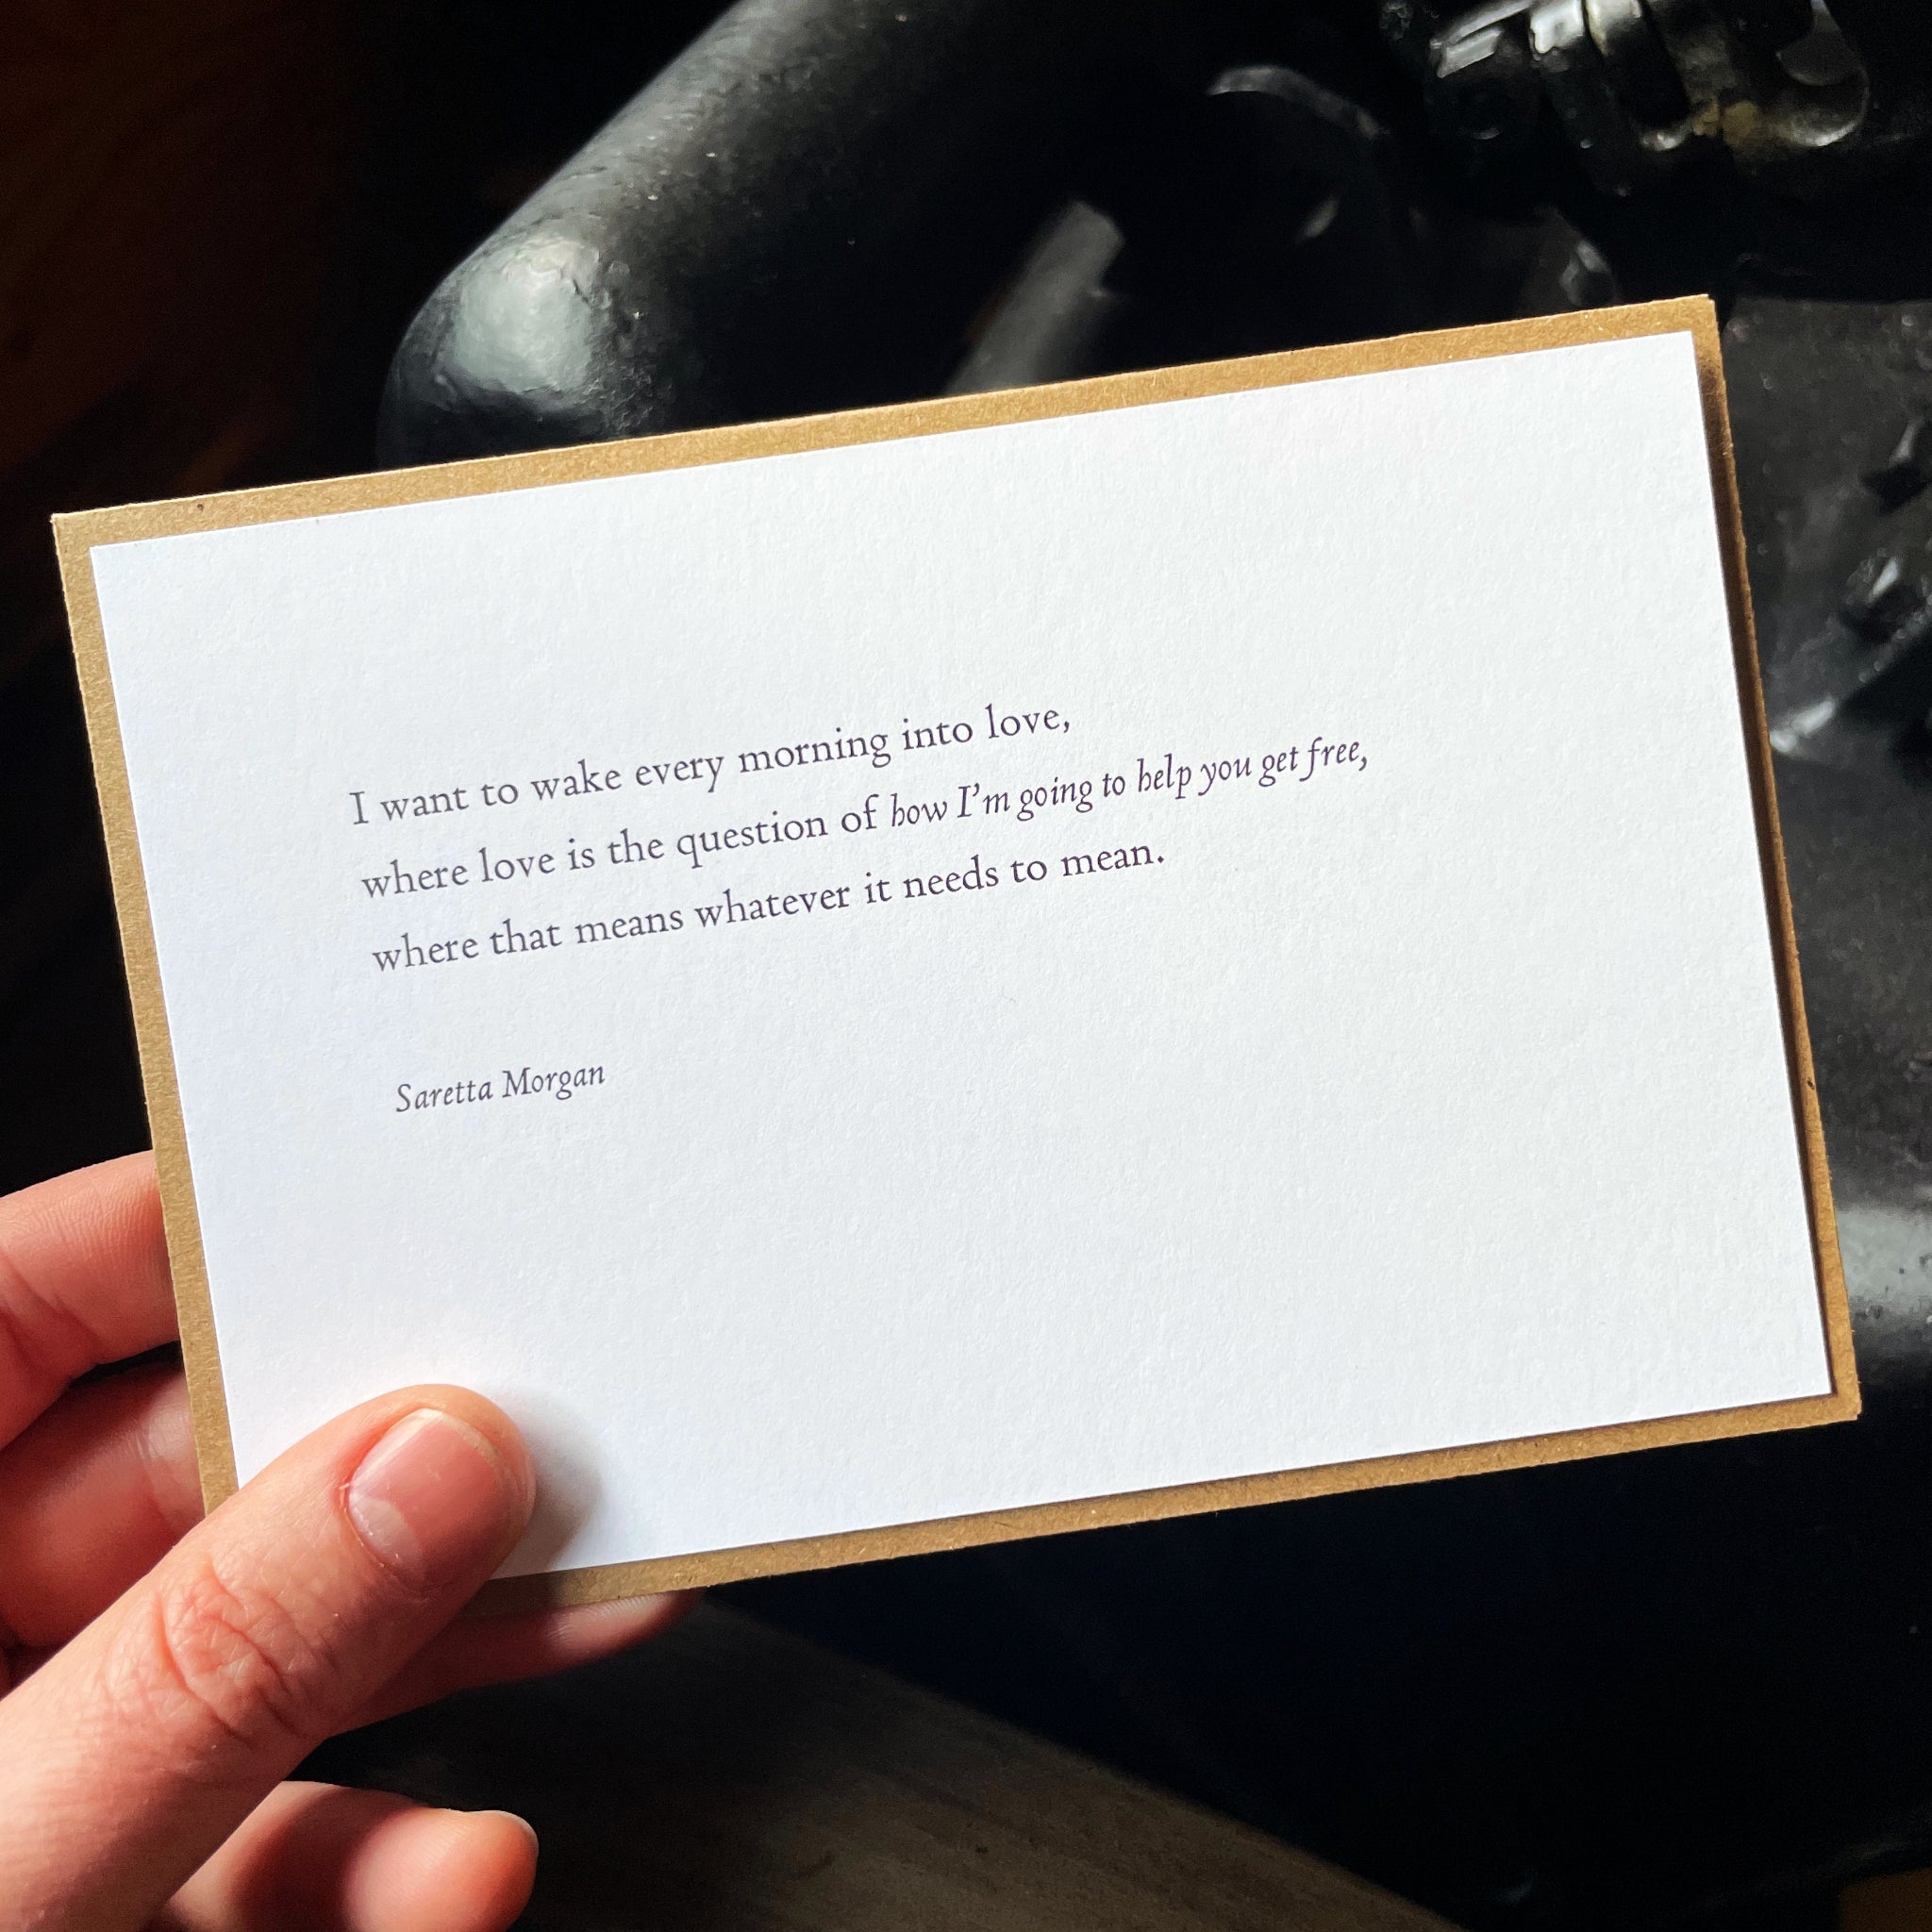 I want to wake every morning into love,
where love is the question of how I'm going to help you get free,
where that means whatever it needs to mean.
Saretta Morgan